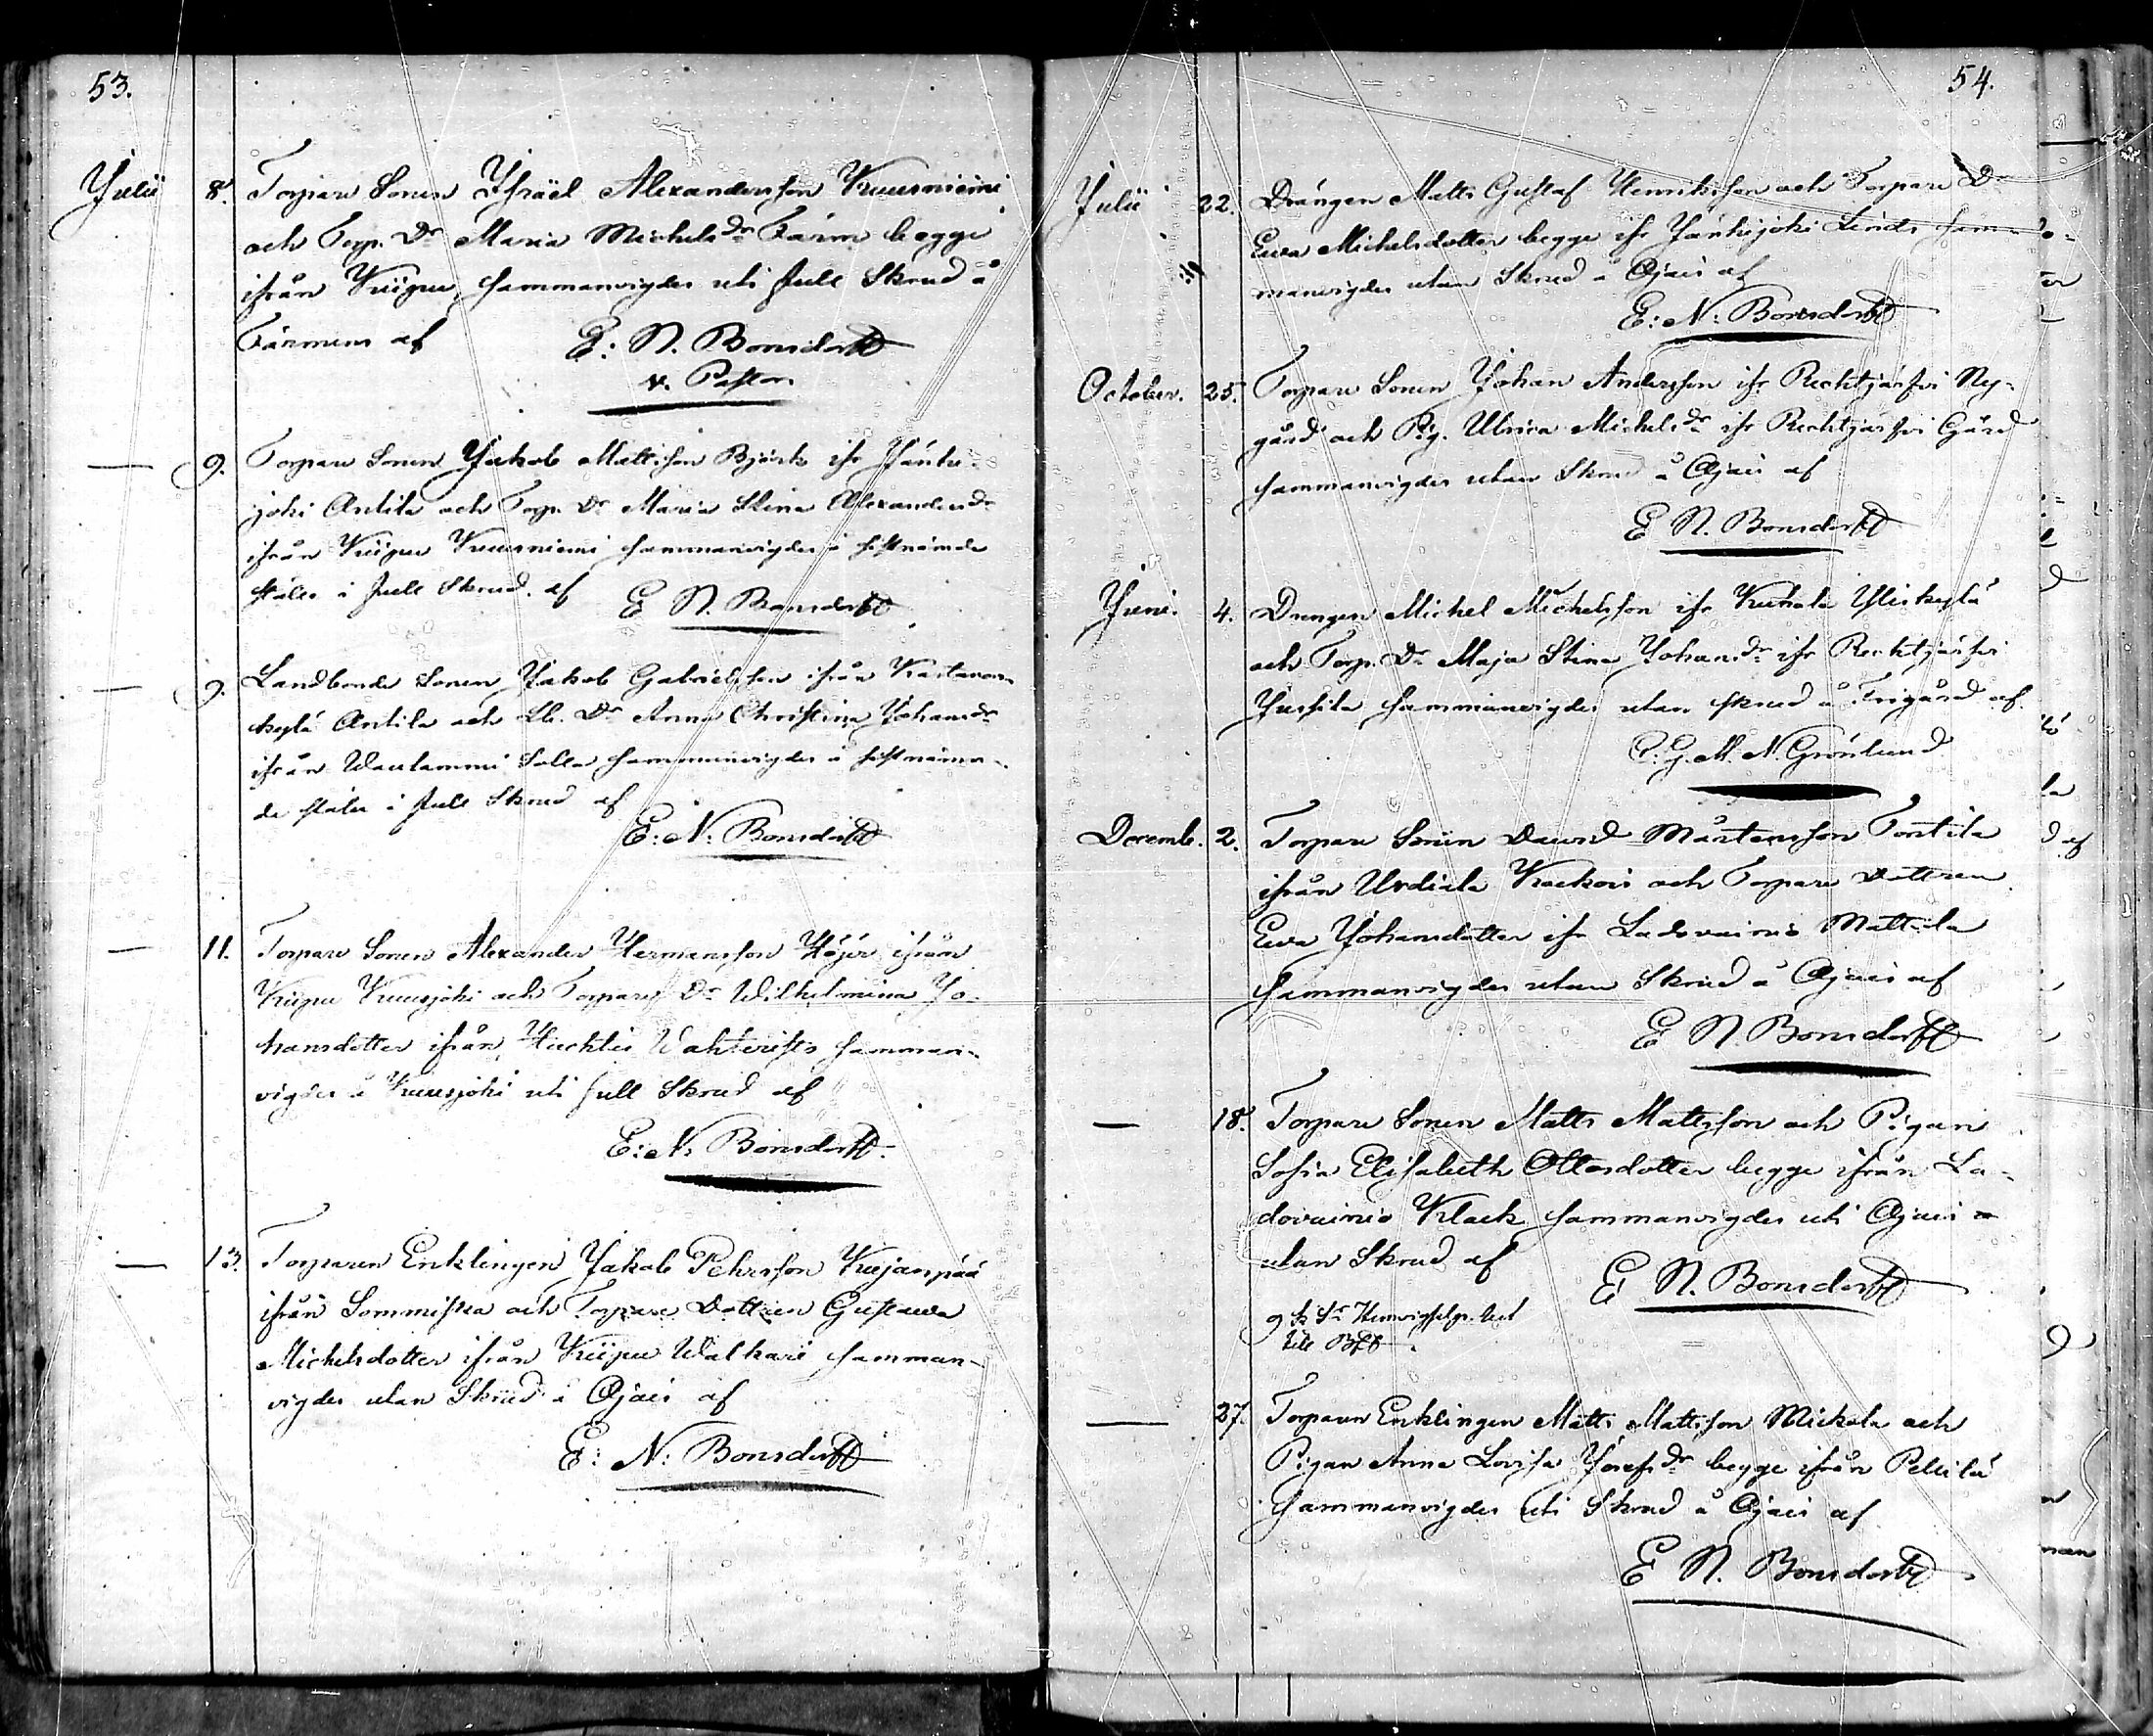 53.
Julii 8. Torpare Sonen Isräel Alexandersson Kuusniemi
och Torp. Dr Maria Michelsdr Färm begge
ifrån Kiipu sammanvigdes uti full Skrud å
Färmens af E: N. Bonsdorff
v. Pastor.
— 9. Torpare Sonen Jakob Mattsson Björk ifr Jänhi-
joki Antila och Torp. Dr Maria Stina Alexandersdr
ifrån Kiipu Kuusniemi sammanvigdes å sistnämde
ställe i full Skrud. af E N. Bonsdorff
— 9. Landbonde Sonen Jakob Gabrielsson ifrån Kartanon-
kylä Antila och Lb. Dr Anna Christina Johansdr
ifrån Waulammi Salla sammanvigdes å sistnämn-
de ställe i full Skrud af
E: N: Bonsdorff
— 11. Torpare Sonen Alexander Hermansson Höjer ifrån
Kiipu Kuusjoki och Torpare Dr Wilhelmina Jo-
hansdotter ifrån Huchtis Wahteristo samman-
vigdes å Kuusjoki uti full Skrud af
E: N: Bonsdorff.
— 13. Torparen Enklingen Jakob Pehrsson Kujanpää
ifrån Sommista och Torpare Dottren Gustawa
Michelsdotter ifrån Kiipu Walkari samman-
vigdes utan Skrud å Ojais af
E: N: Bonsdorff
54.
Julii 22. Drängen Matts Gustaf Henriksson och Torpare Dr
Ewa Michelsdotter begge ifr Jänhijoki Linds sam-
manvigdes utan Skrud å Ojais af
E: N: Bonsdorff
October. 25. Torpare Sonen Johan Andersson ifr Rechtijärfvi Ny-
gård och Pig. Ulrica Michelsdr ifr Rechtijärfvi Gård
sammanvigdes utan Skrud å Ojais af
E N. Bonsdorff
Juni. 4. Drengen Michel Michelsson ifr Kuhala Yliskylä
och Torp. Dr Maja Stina Johansdr ifr Rechtijärfvi
Jussila sammanvigdes utan skrud å Frigård af
C. G. M. N. Grönlund
Decemb. 2. Torpare Sonen David Mårtensson Tontila
ifrån Urdiala Kackois och Torpare Dottren
Ewa Johansdotter ifr Ladovainio Mattila
sammanvigdes utan Skrud å Ojais af
E N. Bonsdorff
— 18. Torpare Sonen Matts Mattsson och Pigan
Sofia Elisabeth Ottosdotter begge ifrån La-
dovainio Klack sammanvigdes uti Ojais
utan Skrud af E N. Bonsdorff
— 27. Torparen Enklingen Matts Mattsson Mickola och
Pigan Anna Lovisa Josefsdr begge ifrån Pelisilä
sammanvigdes uti Skrud å Ojais af
E N. Bonsdorff